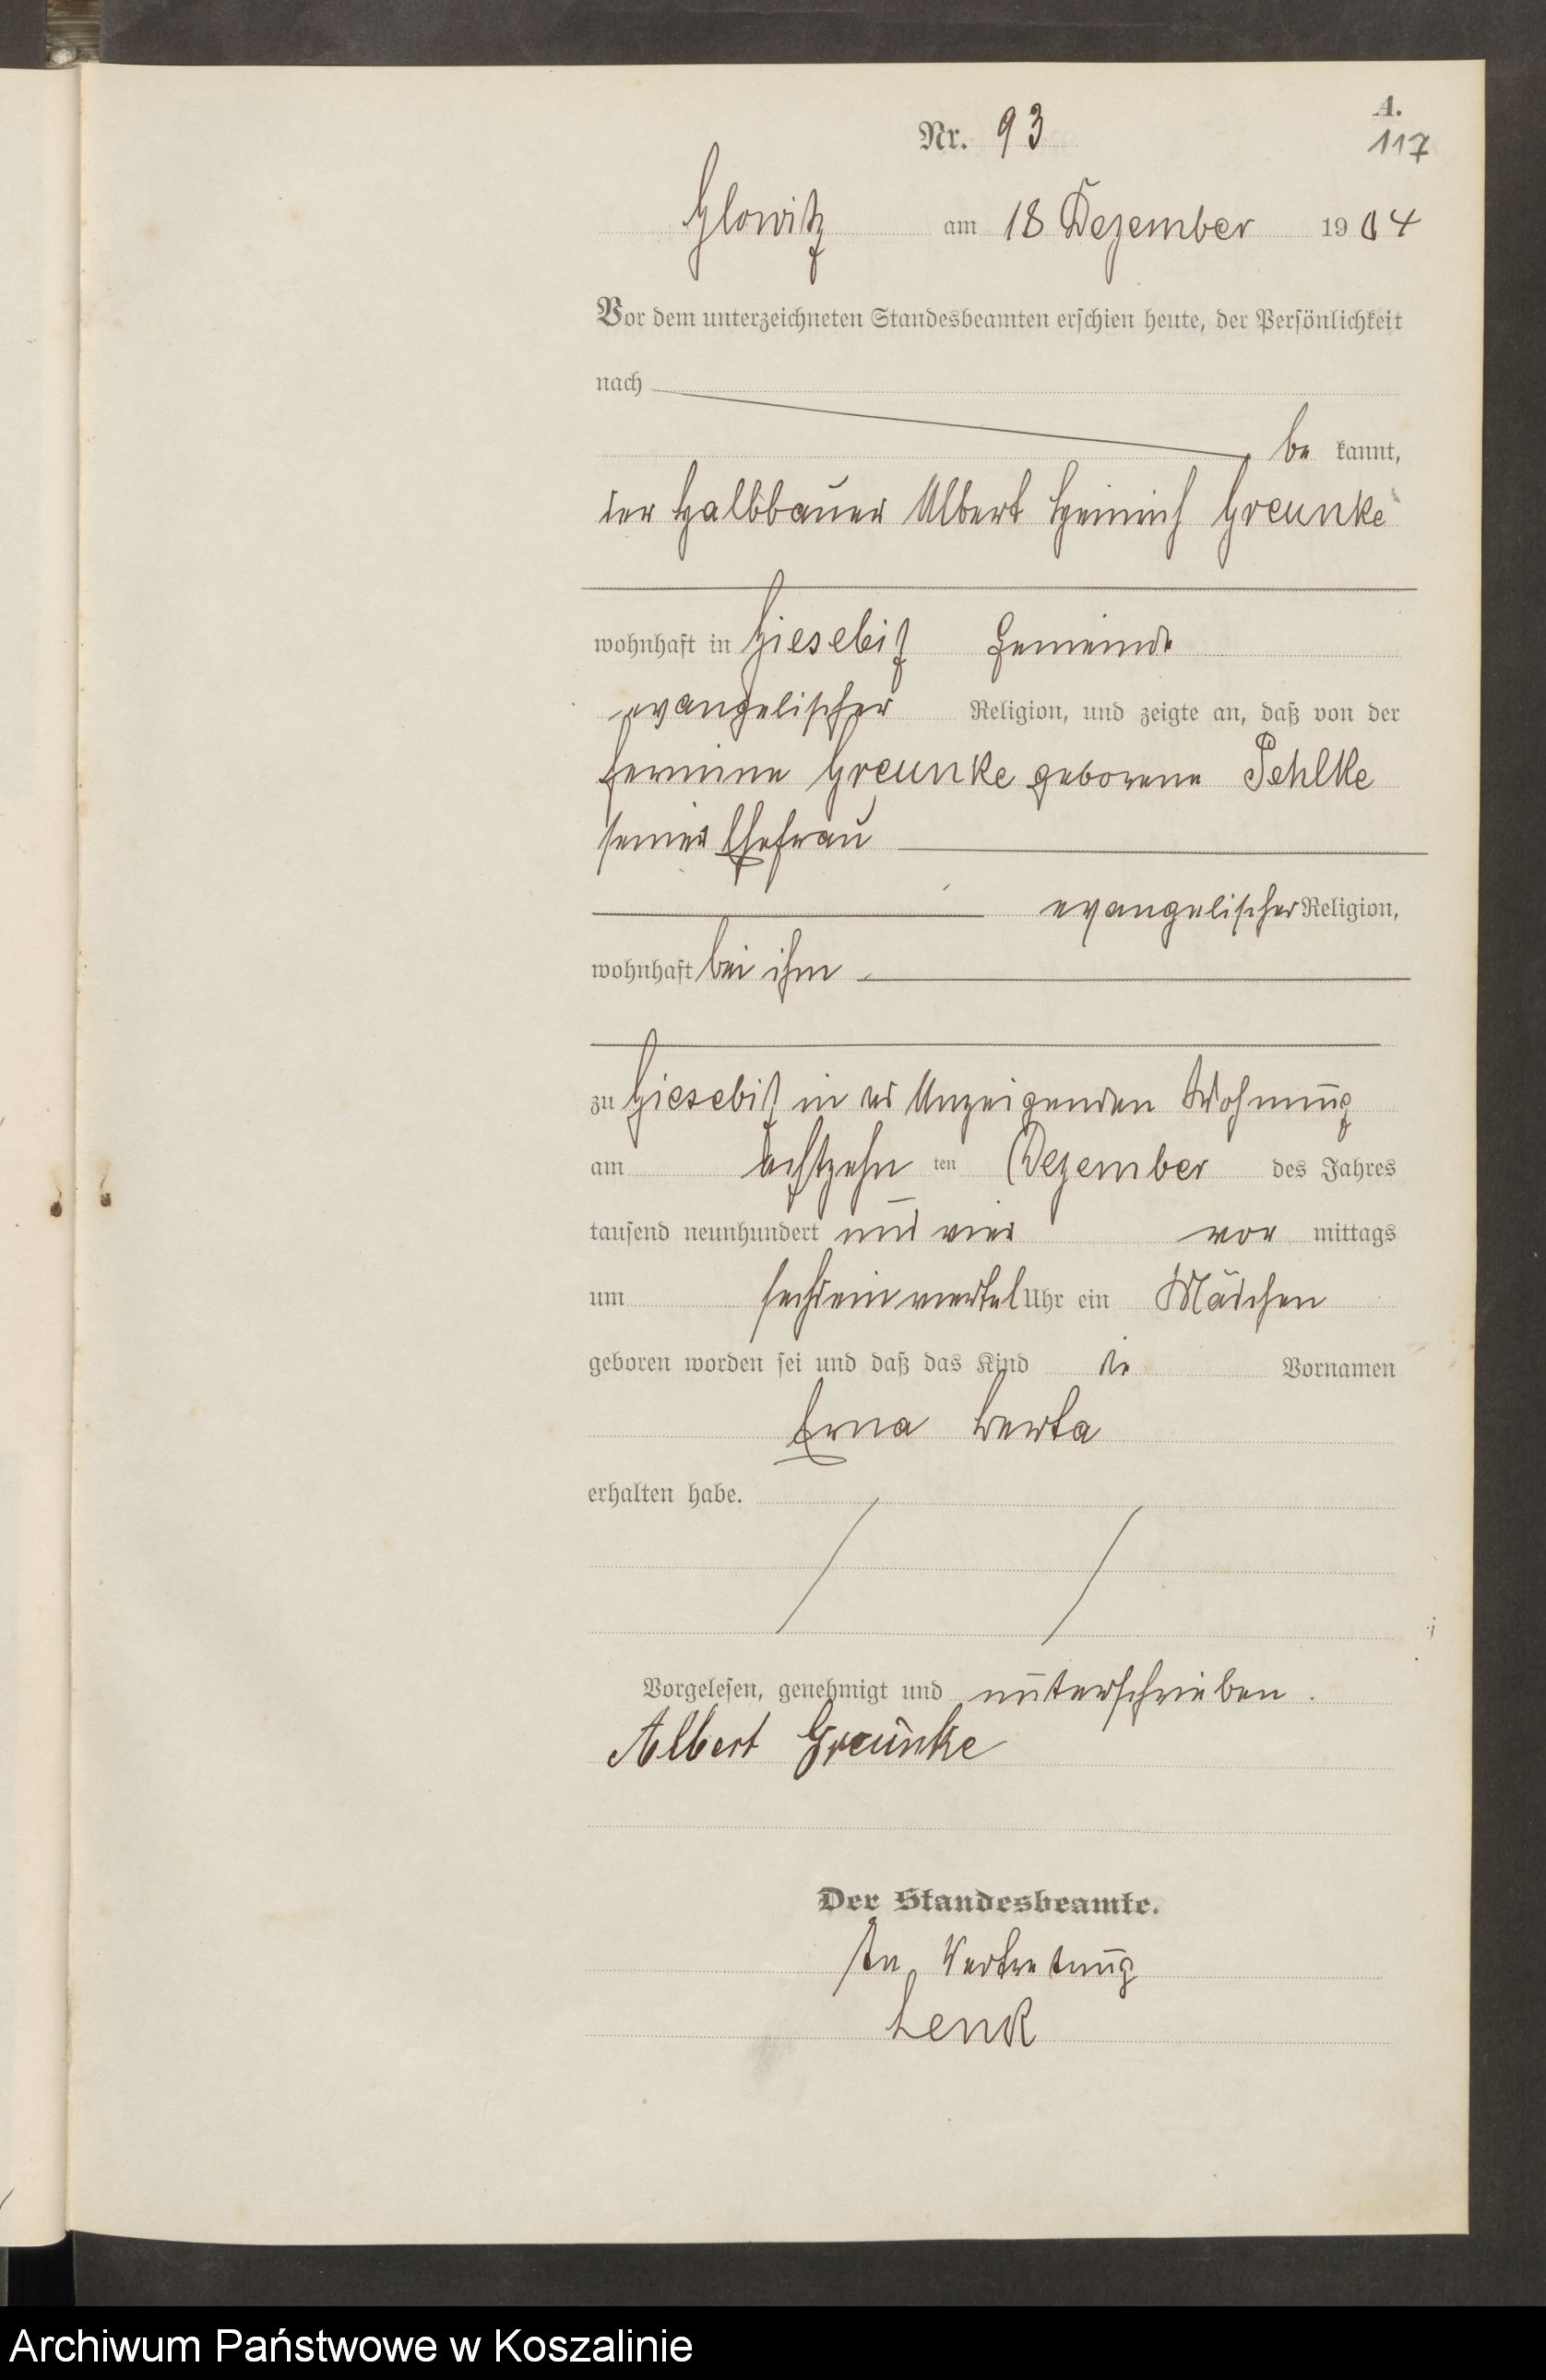 A.
117
Nr. 93
Glowitz am 18 Dezember 1904
Vor dem unterzeichneten Standesbeamten erschien heute, der Persönlichkeit
nach
be kannt,
der Halbbauer Albert Heinrich Greunke
wohnhaft in Giesebitz Gemeinde
evangelischer Religion, und zeigte an, daß von der
Hermine Greunke geborene Pehlke
seiner Ehefrau
evangelischer Religion,
wohnhaft bei ihm
zu Giesebitz in des Anzeigenden Wohnung
am achtzehn ten Dezember des Jahres
tausend neunhundert und vier vor mittags
um sechseinviertel Uhr ein Mädchen
geboren worden sei und daß das Kind die Vornamen
Erna Herta
erhalten habe.
Vorgelesen, genehmigt und unterschrieben.
Albert Greunke
Der Standesbeamte.
In Vertretung
Lenk
Archiwum Państwowe w Koszalinie